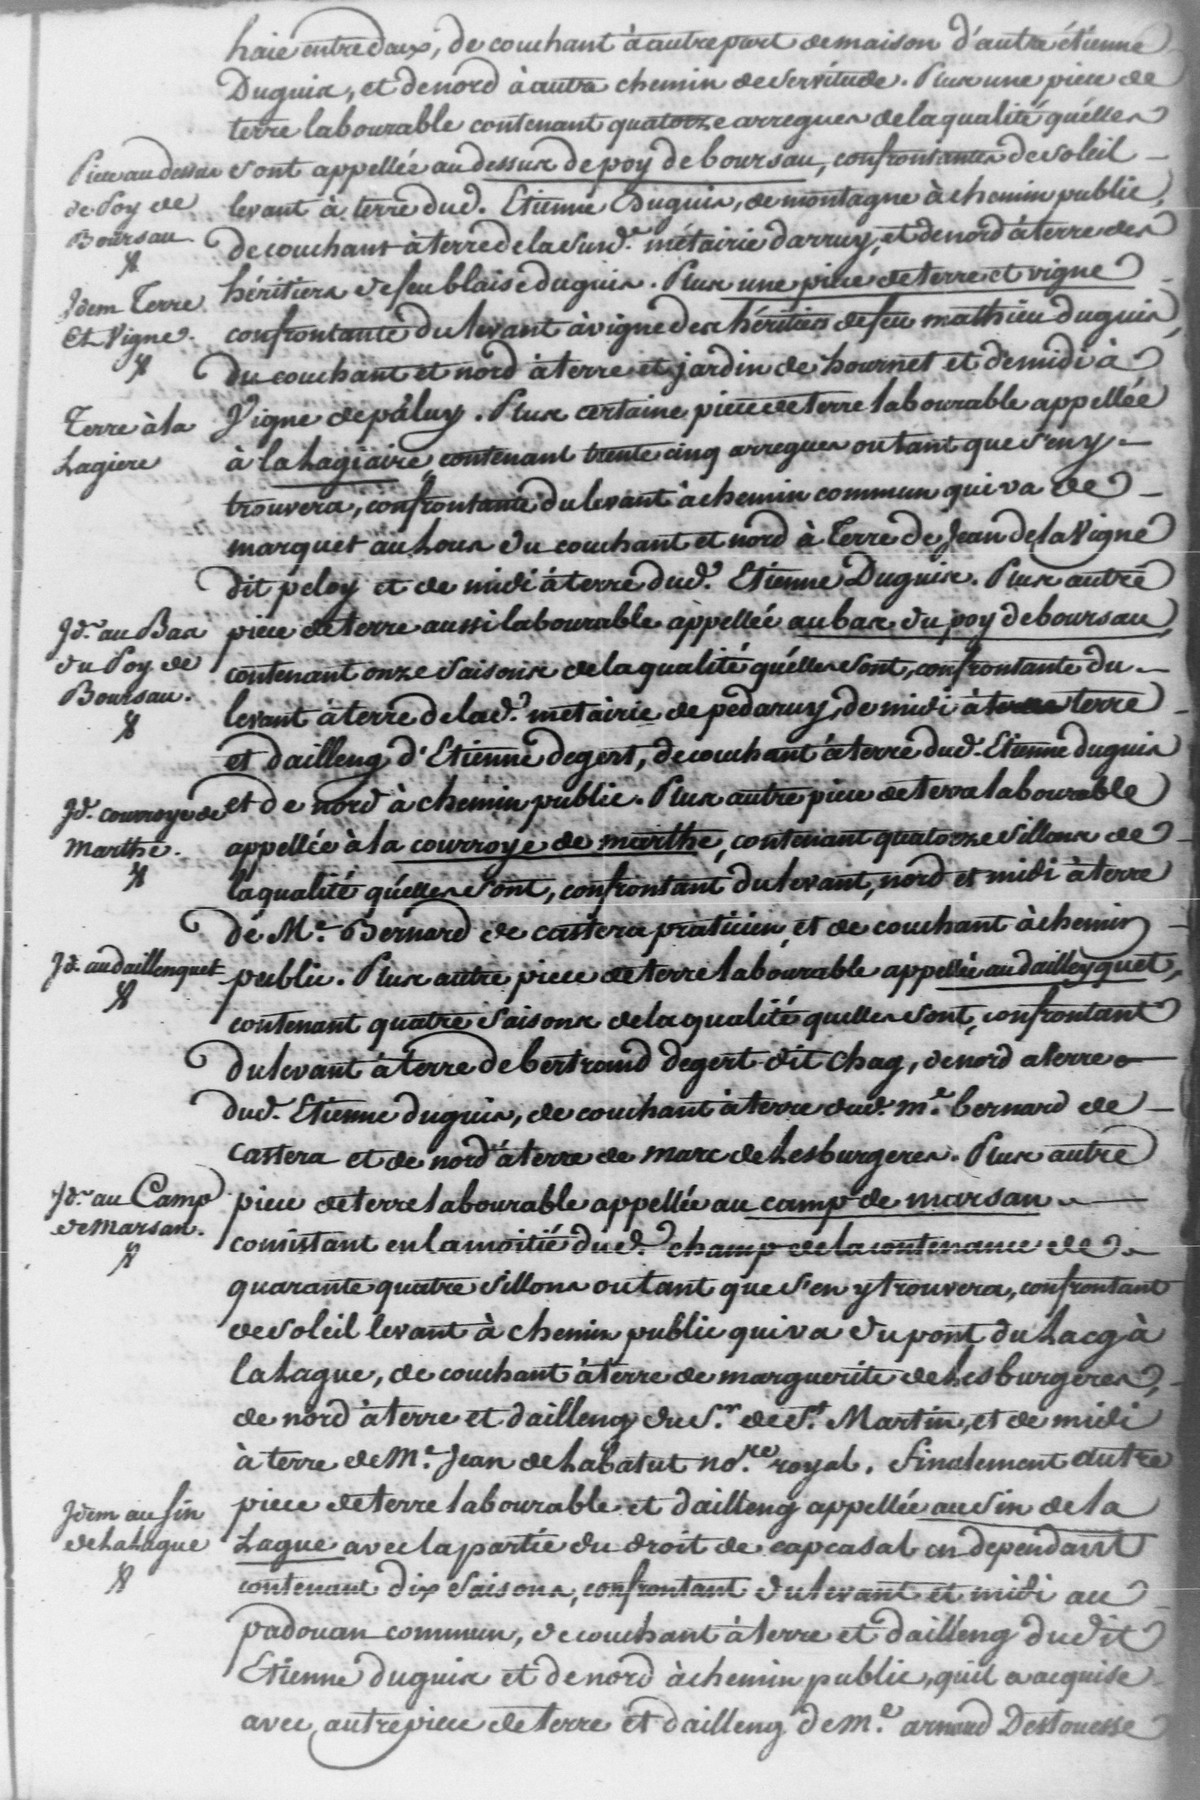 haie entredaux, de couchant à autre part de maison d'autre étienne
Duguix, et de nord à autre chemin de servitude. Plux une piece de
terre labourable contenant quatorze arregues de la qualité qu'élles
Piece au dessus
sont appellée au dessux de poy de boursau, confrontantes de soleil
de Poy de
levant à terre dud. Etienne Duguix, de montagne à chemin public,
Boursau
de couchant à terre de la susd.e métairie darruy, et de nord à terre des
héritiers de feu blaise duguix. Plux une piece de terre et vigne
Idem Terre
Et Vigne.
confrontante du levant à vigne des héritiers de feu mathieu duguix,
du couchant et nord à terre et jardin de hournet et de midi à
Terre à la
Vigne de pàluy. Plux certaine piece de terre labourable appellée
Lagiere
à la Lagiaire, contenant trente cinq arregues ou tant que s'en y
trouvera, confrontante du levant à chemin commun qui va de
marquet au Loux du couchant et nord à Terre de Jean de la Vigne
dit peloy et de midi à terre dud. Etienne Duguix. Plux autre
Id. au Bas
piece de terre aussi labourable appellée au bax du poy de boursau,
du Poy de
contenant onze saisonx de la qualité qu'élles sont, confrontante du
Boursau.
levant à terre de lad. métairie de pedaruy, de midi à terre
et dailleng d'Etienne degert, de couchant à terre dud. Etienne duguix
Id. courroye de
et de nord à chemin public. Plux autre piece de terre labourable
Marthe.
appellée à la courroye de marthe, contenant quatorze sillonx de
la qualité qu'élles sont, confrontant du levant, nord et midi à terre
de Me. Bernard de castera praticien, et de couchant à chemin
Id. au daillenguet
public. Plux autre piece de terre labourable appellée au dailleyguet,
contenant quatre saisonx de la qualité quelles sont, confrontant
du levant à terre de bertrand degert dit Chag, de nord a terre
dud. Etienne duguix, de couchant à terre dud. me. bernard de
castera et de nord à terre de marc de Lesburgeres. Plux autre
Id. au Camp
piece de terre labourable appellée au camp de marsan
de Marsan.
consistant en la moitié dud. champ de la contenance de
quarante quatre sillons ou tant que s'en y trouvera, confrontant
de soleil levant à chemin public qui va du pont du Lacq à
la Lague, de couchant à terre de marguerite de Lesburgeres,
de nord à terre et dailleng du Sr. de St. Martin, et de midi
à terre de Me. Jean de Labatut no.re royal. Finalement autre
Idem au Sin
piece de terre labourable et dailleng appellée au Sin de la
de la Lague
Lague avec la partie du droit de capcasal en dependant
contenant dix saisons, confrontant du levant et midi au
padouan commun, de couchant à terre et dailleng dudit
Etienne duguix et de nord à chemin public, qu'il a acquise
avec autre piece de terre et dailleng de Me. arnaud Destouesse